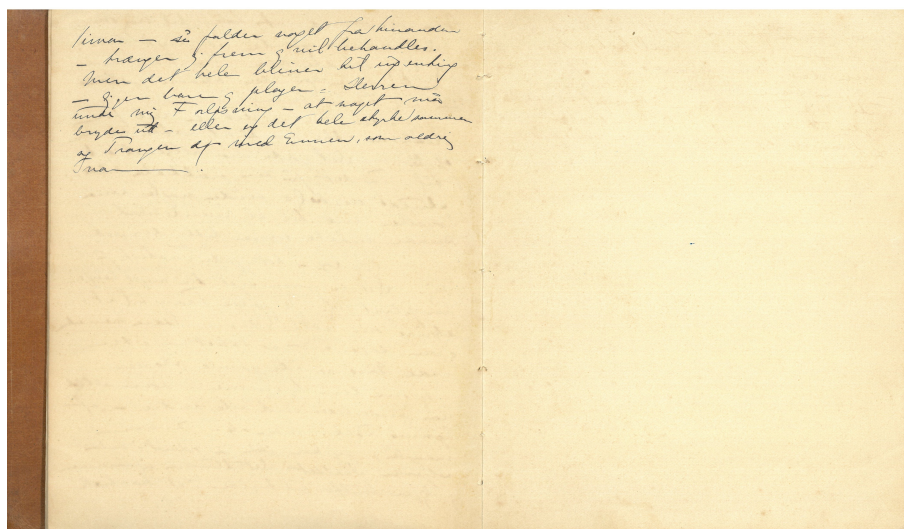 – så falder noget fra hinanden
– trænger sig frem og vil behandles.
Men det hele bliver til ingenting
– og plager – Herren
unde mig Forløsning – at noget må
brydes ud – eller og det hele styrke sammen
og Trangen dø med Evnen, som aldrig